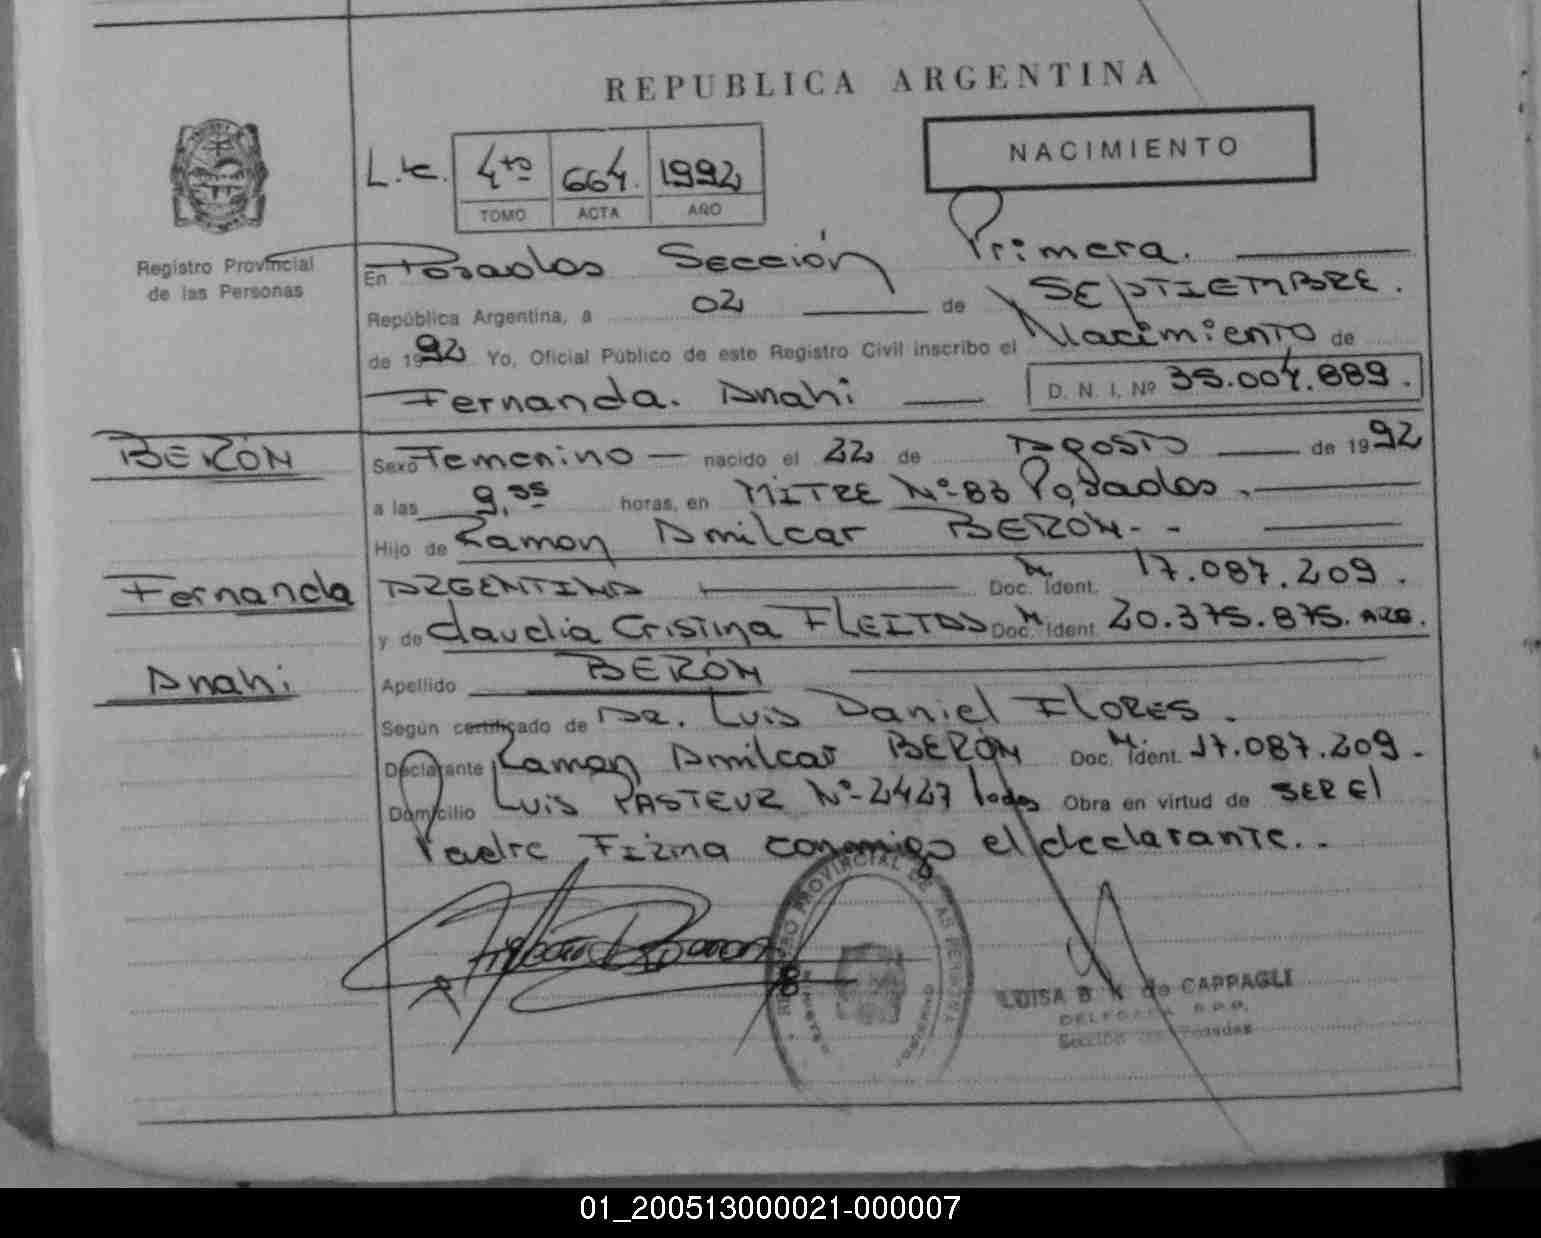 REPUBLICA ARGENTINA
NACIMIENTO
4to 664. 1992
TOMO ACTA AÑO
Registro Provincial
de las Personas
En Posadas Sección Primera.
República Argentina, a 02 de SEPTIEMBRE.
de 1992 Yo, Oficial Público de este Registro Civil inscribo el Nacimiento de
Fernanda. Anahi D. N. I. Nº 35.004.889.
BERÓN
Sexo Femenino nacido el 22 de Agosto de 1992
a las 9,55 horas, en MITRE Nº-83 Posadas.
Hijo de Ramon Amilcar BERÓN--
Fernanda
ARGENTINA Doc. M. Ident. 17.087.209.
y de Claudia Cristina FLEITAS Doc. M. Ident. 20.375.875. ARG.
Anahi
Apellido BERÓN
Según certificado de DR. Luis Daniel FLORES.
Declarante Ramon Amilcar BERÓN Doc. M. Ident. 17.087.209.
Domicilio Luis PASTEUR Nº-2427 Pdas Obra en virtud de SER El
Padre Firma conmigo el declarante..
REGISTRO PROVINCIAL DE LAS PERSONAS
LUISA B. de CAPPAGLI
DELEGADA R.P.P.
Sección Posadas
01_200513000021-000007